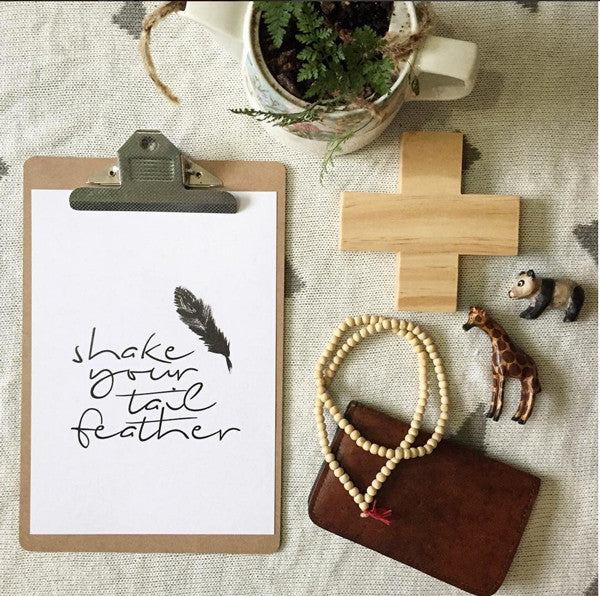 shake
your
tail
feather